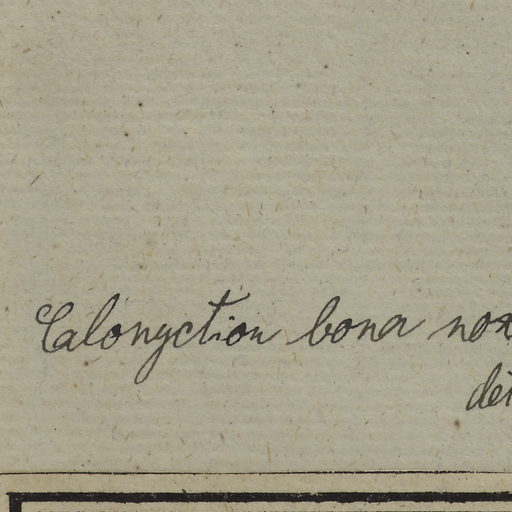 Calonyction bona nox
dét